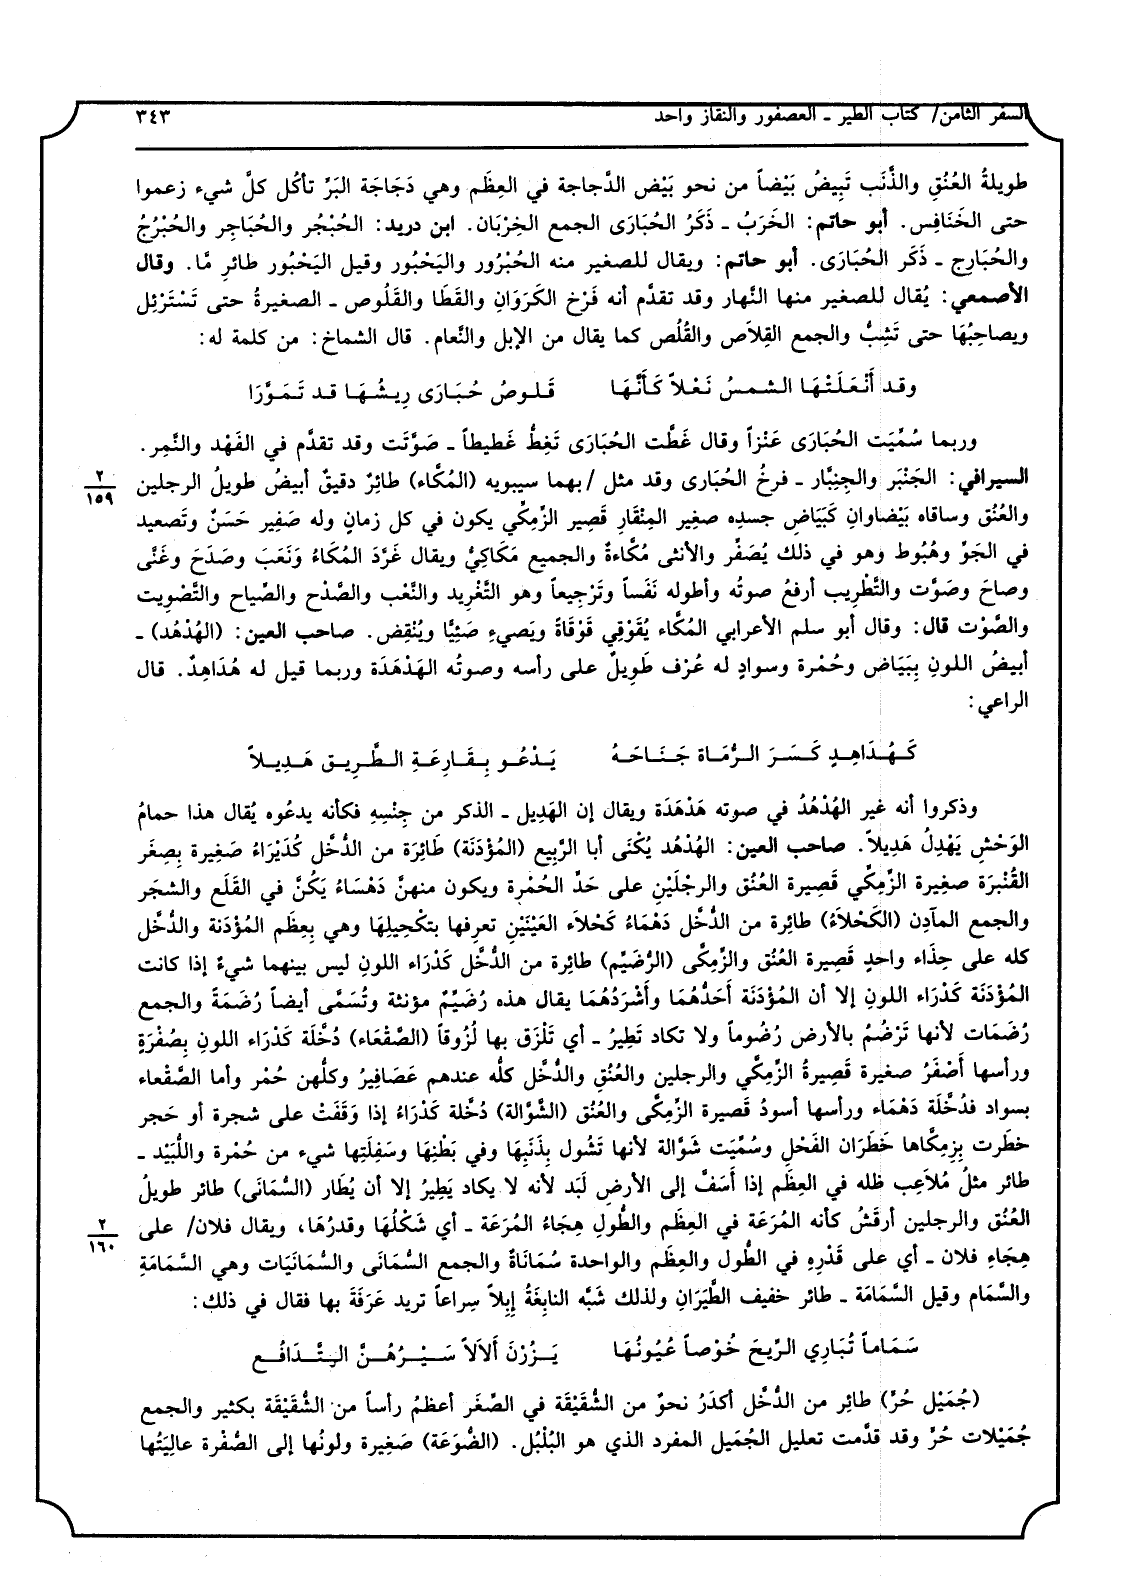 السفر الثامن/ كتاب الطير ـ العصفور والنقاز واحد ٣٤٣
طويلةُ العُنُقِ والذَّنَب تَبِيضُ بَيْضاً من نحو بَيْض الدَّجاجة في العِظَم وهي دَجَاجَة البَرِّ تأكُل كلَّ شيء زعموا
حتى الخَنَافِس. أبو حاتم: الخَرَبُ ـ ذَكَرُ الحُبَارَى الجمع الخِرْبَان. ابن دريد: الحُبْجُر والحُبَاجِر والحُبْرُجُ
والحُبَارِج ـ ذَكَر الحُبَارَى. أبو حاتم: ويقال للصغير منه الحُبْرُور واليَحْبُور وقيل اليَحْبُور طائِر مَّا. وقال
الأصمعي: يُقال للصغير منها النَّهار وقد تقدَّم أنه فَرْخ الكَرَوَانِ والقَطَا والقَلُوص ـ الصغيرةُ حتى تَسْتَرْئِل
ويصاحِبُهَا حتى تَشِبُّ والجمع القِلاَص والقُلُص كما يقال من الإبل والنَّعام. قال الشماخ: من كلمة له:
وقد أَنْعَلَتْهَا الشمسُ نَعْلاً كَأَنَّهَا قَلوصُ حُبَارَى رِيشُهَا قد تَمَوَّرَا
وربما سُمِّيَت الحُبَارَى عَنْزاً وقال غَطَّت الحُبَارَى تَغِطُّ غَطيطاً ـ صَوَّتَت وقد تقدَّم في الفَهْد والنَّمِر.
السيرافي: الجَنْبَر والجِنِبَّار ـ فرخُ الحُبَارى وقد مثل /بهما سيبويه (المُكَّاء) طائِرٌ دقيقٌ أبيضُ طويلُ الرجلين
٢
١٥٩
والعُنُق وساقاه بَيْضاوانِ كَبَيَاضِ جسدِه صغير المِنْقَارِ قَصِير الزِّمِكِّي يكون في كل زمانٍ وله صَفِير حَسَنٌ وتَصعيد
في الجَوِّ وهُبُوط وهو في ذلك يُصَفِّر والأنثى مُكَّاءةٌ والجميع مَكَاكِيُّ ويقال غَرَّدَ المُكَاءُ وَنَعَبَ وصَدَحَ وغَنَّى
وصاحَ وصَوَّت والتَّطرِيب أرفعُ صوتُه وأطوله نَفَساً وتَرْجِيعاً وهو التَّغْرِيد والنَّعْب والصَّدْح والصِّياح والتَّصْوِيت
والصَّوْت قال: وقال أبو سلم الأعرابي المُكَّاء يُقَوْقِي قَوْقَاةً ويَصيءِ صَئِيًّا ويُنْقِض. صاحب العين: (الهُدْهُد) ـ
أبيضُ اللونِ بِبَيَاض وحُمْرة وسوادٍ له عُرْف طَوِيلٌ على رأسه وصوتُه الهَدْهَدَة وربما قيل له هُدَاهِدٌ. قال
الراعي:
كَهُدَاهِدٍ كَسَرَ الرُّمَاة جَنَاحَهُ يَدْعُو بِقَارِعَةِ الطَّرِيق هَدِيلاً
وذكروا أنه غير الهُدْهُدُ في صوته هَدْهَدَة ويقال إن الهَدِيل ـ الذكر من جِنْسِهِ فكأنه يدعُوه يُقال هذا حمامُ
الوَحْشِ يَهْدِلُ هَدِيلاً. صاحب العين: الهُدْهُد يُكْنَى أبا الرَّبِيع (المُؤْدَنَة) طَائِرَة من الدُّخَّل كُدَيْرَاءُ صَغِيرة بِصِغَر
القُنْبَرَة صغِيرة الزِّمِكِّي قَصِيرة العُنُق والرجْلَيْنِ على حَدِّ الحُمْرة ويكون منهنَّ دَهْسَاءُ يَكُنَّ في القَلَع والشجَر
والجمع المآدِن (الكَحْلاَءُ) طائِرة من الدُّخَّل دَهْمَاءُ كَحْلاَء العَيْنَيْنِ تعرفها بتكْحِيلِهَا وهي بِعِظَم المُؤْدَنة والدُّخَّل
كله على حِذَاء واحدٍ قَصِيرة العُنُق والزِّمِكَّى (الرُّضَيِّم) طائِرة من الدُّخَّل كَدْرَاء اللونِ ليس بينهما شيءٌ إذا كانت
المُؤْدَنَة كَدْرَاء اللونِ إلا أن المُؤْدَنَة أَحَدُّهُمَا وأَشْرَدُهُمَا يقال هذه رُضَيِّمٌ مؤنثة وتُسَمَّى أيضاً رُضَمَةً والجمع
رُضَمَات لأنها تَرْضُمُ بالأرضِ رُضُوماً ولا تكاد تَطِيرُ ـ أي تَلْزَق بها لُزُوقاً (الصَّقْعَاء) دُخَّلَة كَدْرَاء اللونِ بِصُفْرَةٍ
ورأسها أَصْفَرُ صغيرة قَصِيرةُ الزِّمِكَّي والرجلين والعُنُقِ والدُّخَّل كلُّه عندهم عَصَافِيرُ وكلُّهن حُمْر وأما الصَّقْعاء
بسواد فدُخَّلَة دَهْمَاء ورأسها أسودُ قَصِيرة الزِّمِكَّى والعُنُق (الشَّوَّالة) دُخَّلة كَدْرَاءُ إذا وَقَفَتْ على شجرة أو حَجر
خطَرت بِزِمِكَّاها خَطَرَان الفَحْلِ وسُمِّيَت شَوَّالة لأنها تَشُول بِذَنَبِهَا وفي بَطْنِهَا وسَفِلَتِها شيء من حُمْرة واللُّبَيْد ـ
طائر مثلُ مُلاَعِب ظله في العِظَم إذا أَسَفَّ إلى الأرضِ لَبَد لأنه لا يكاد يَطِيرُ إلا أن يُطَار (السُّمَانَى) طائر طويلُ
العُنُق والرجلين أرقَشُ كأنه المُرَعَة في العِظَم والطُّولِ هِجَاءُ المُرَعَة ـ أي شَكْلُهَا وقدرُهَا، ويقال فلان/ على
٢
١٦٠
هِجَاءِ فلان ـ أي على قَدْرِهِ في الطُّول والعِظَم والواحدة سُمَانَاةٌ والجمع السُّمَانَى والسُّمَانَيَات وهي السَّمَامَةِ
والسَّمَام وقيل السَّمَامَة ـ طائر خفيف الطَّيَرَانِ ولذلك شَبَّه النابِغَةُ إِبِلاً سِراعاً تريد عَرَفَةَ بها فقال في ذلك:
سَمَاماً تُبَارِي الرِّيحَ خُوْصاً عُيُونُهَا يَزُرْنَ أَلاَلاً سَيْرُهُنَّ التَّدَافُع
(جُمَيْل حُرِّ) طائِر من الدُّخَّل أكدَرُ نحوٌ من الشُّقَيْقَة في الصِّغَر أعظمُ رأساً من الشُّقَيْقَة بكثير والجمع
جُمَيْلات حُرِّ وقد قدَّمت تعليل الجُمَيل المفرد الذي هو البُلْبُل. (الضُّوَعَة) صَغِيرة ولونُها إلى الصُّفْرة عاليَتُها